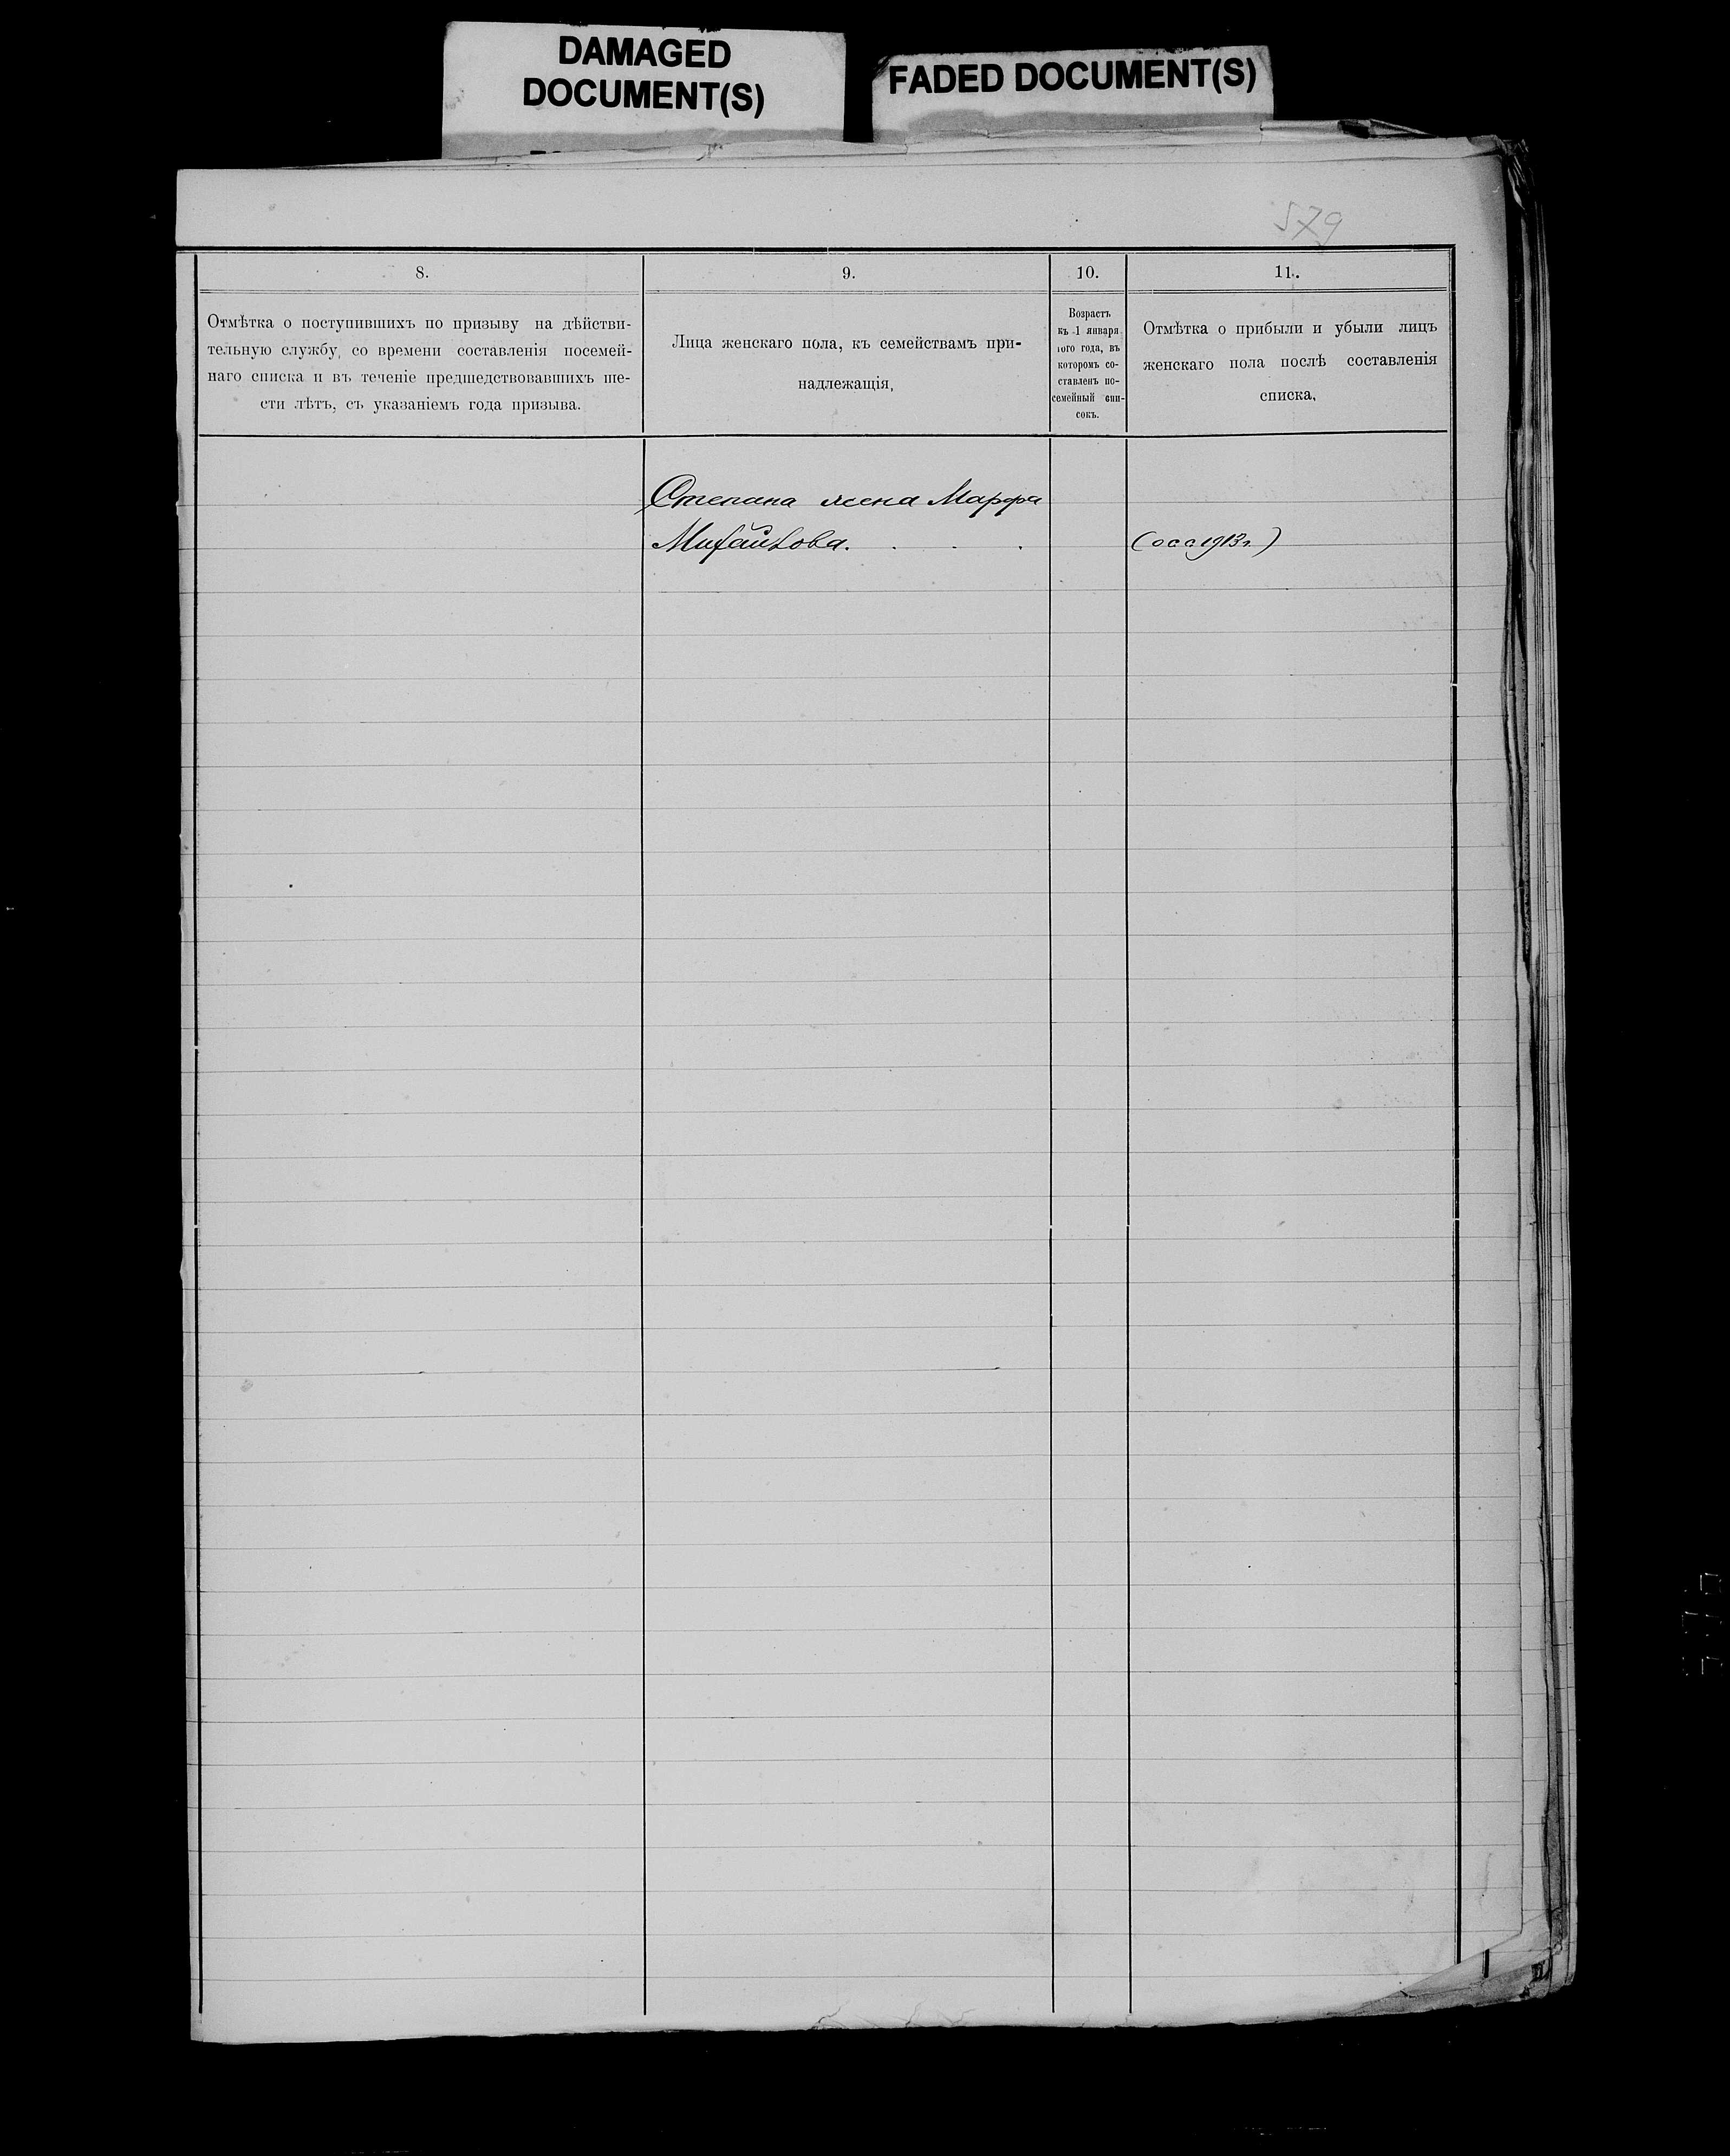 DAMAGED
DOCUMENT(S)
FADED DOCUMENT(S)
579
8.
9.
10.
11.
Отмѣтка о поступившихъ по призыву на дѣйстви-
тельную службу, со времени составленія посемей-
наго списка и въ теченіе предшедствовавшихъ ше-
сти лѣтъ, съ указаніемъ года призыва.
Лица женскаго пола, къ семействамъ при-
надлежащія,
Возрастъ
къ 1 января
того года, въ
которомъ со-
ставленъ по-
семейный спи-
сокъ.
Отмѣтка о прибыли и убыли лицъ
женскаго пола послѣ составленія
списка,
Степана жена Марфа
Михайлова. . . .
1913г.)